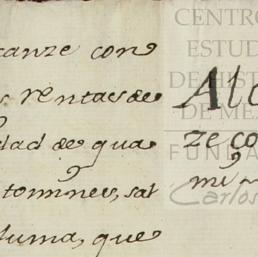 canze con
rentas de
dad de qua
tomines, sal
suma, que
Alc
ze co
mi
CENTRO
ESTUD
DE HISTO
DE MÉX
FUNDA
Carlos